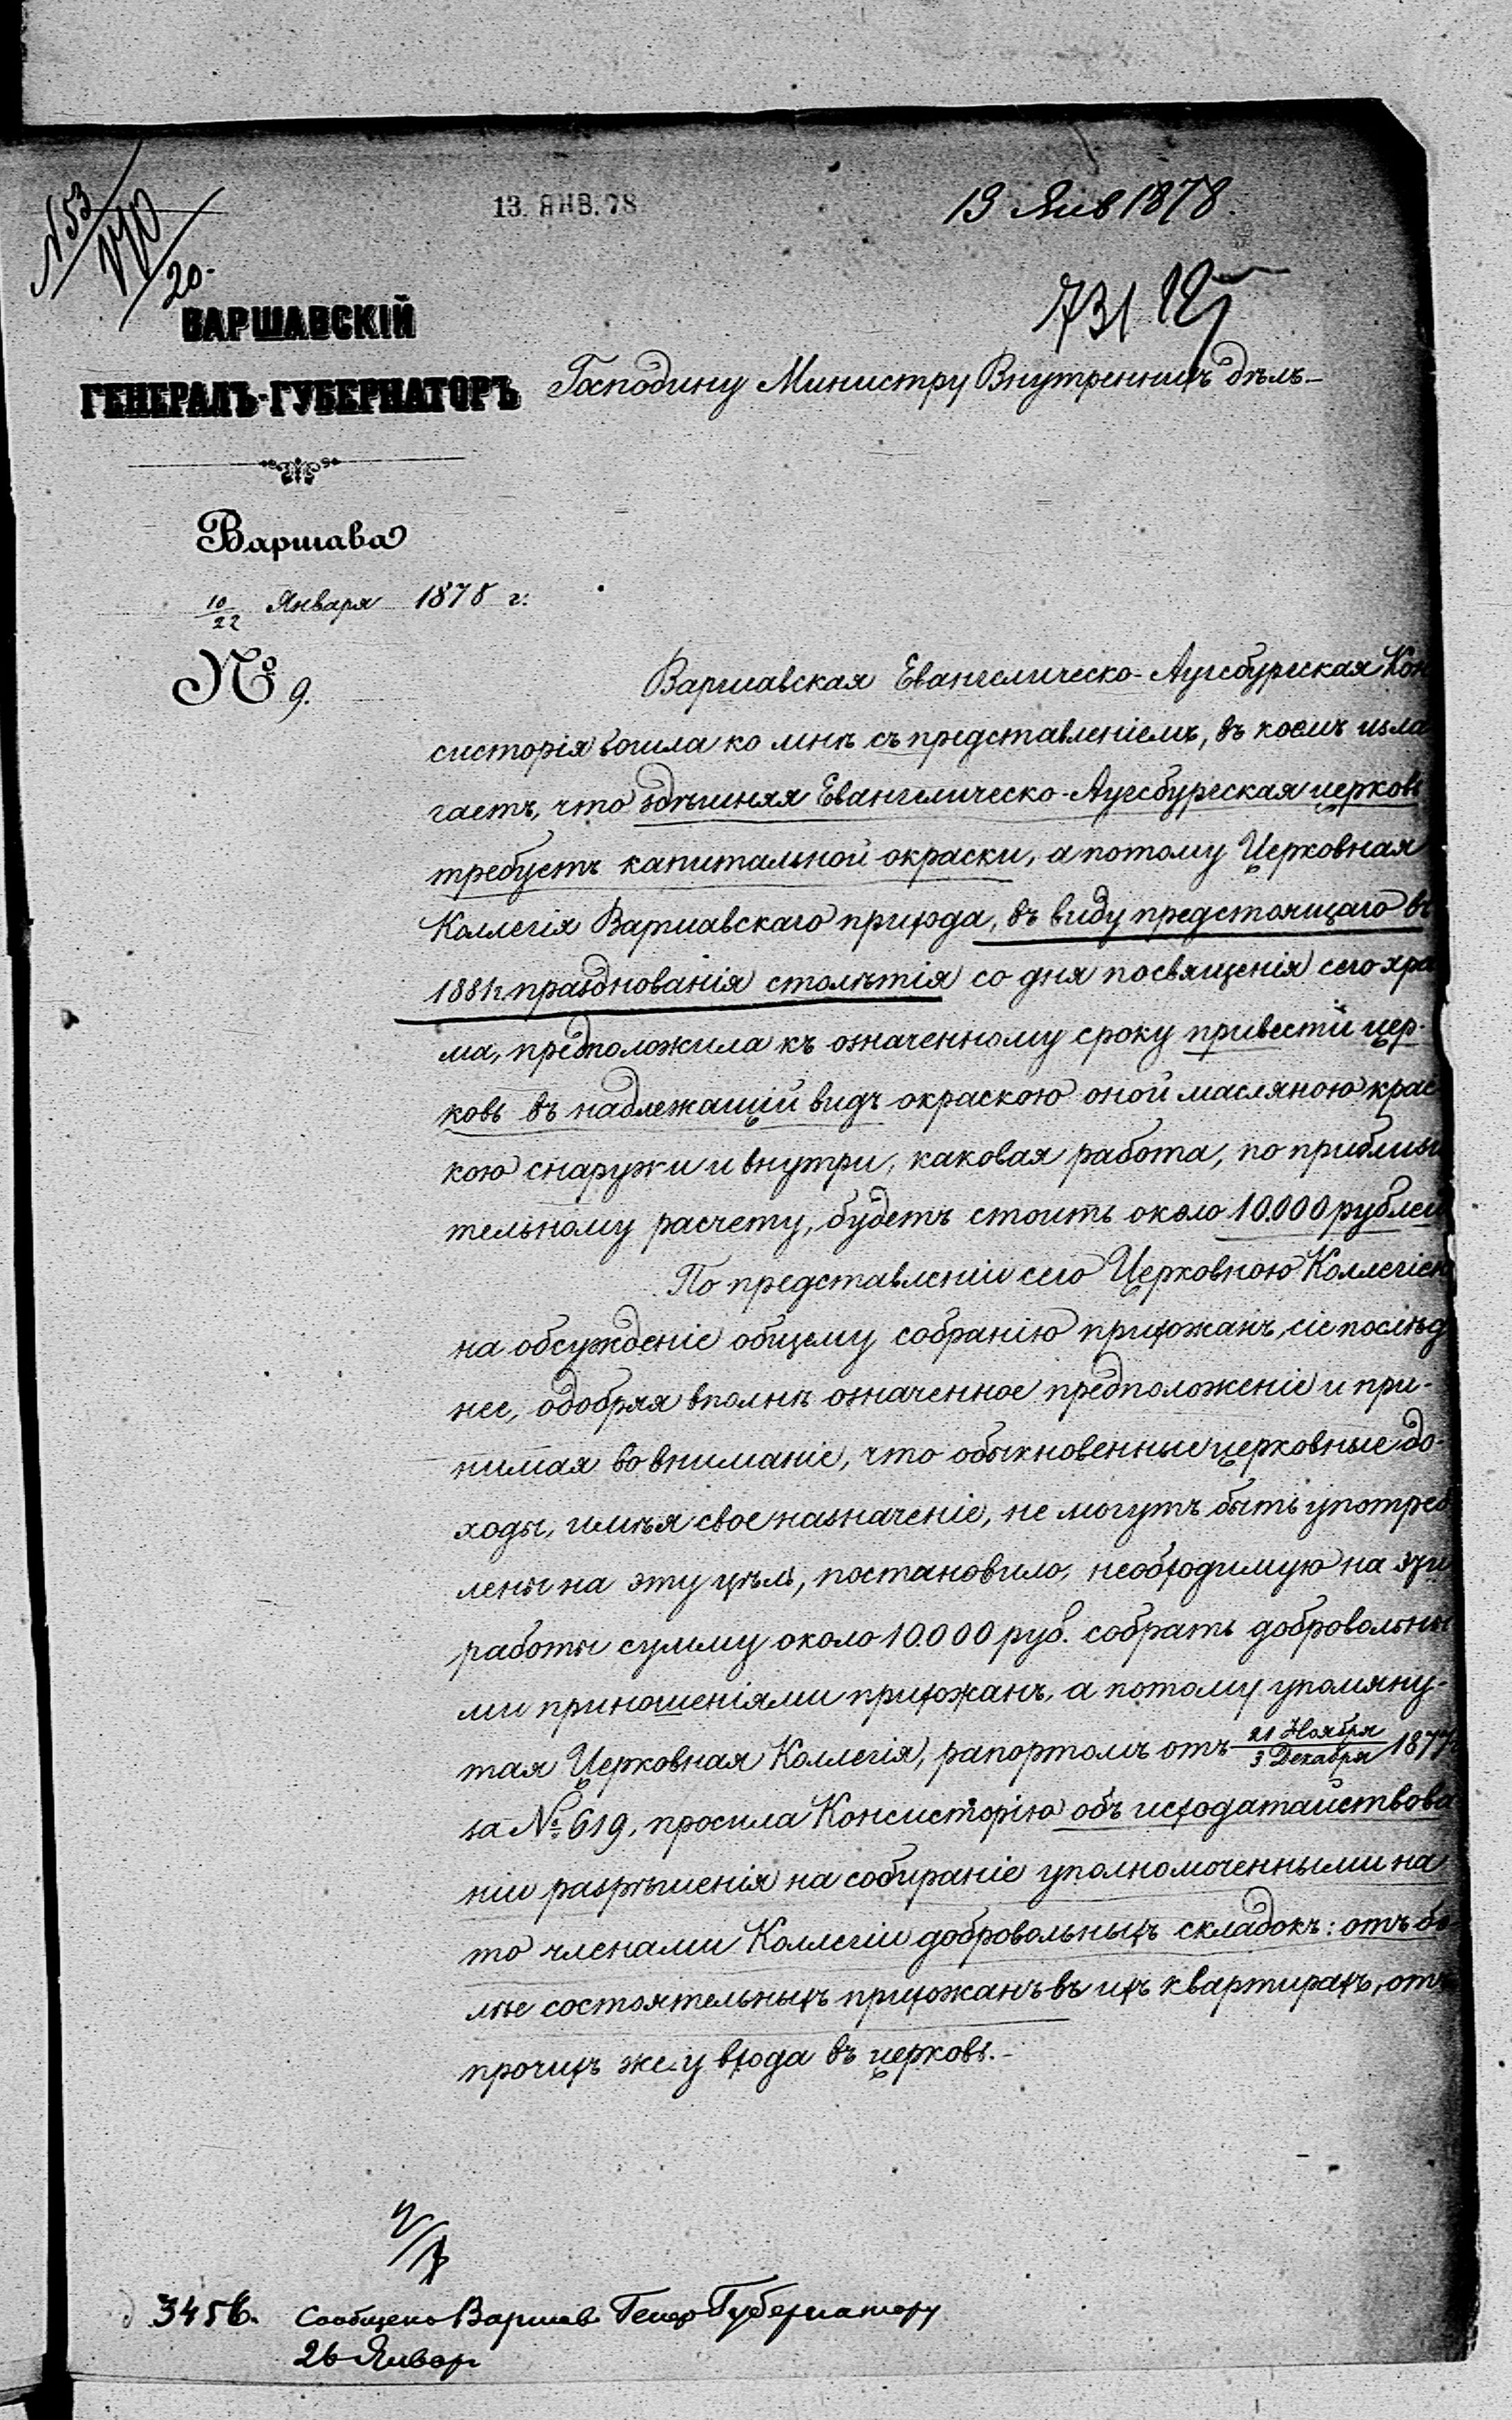 №53
№10
20-
13. ЯНВ. 78
13 Янв 1878.
731
ВАРШАВСКІЙ
ГЕНЕРАЛЪ-ГУБЕРНАТОРЪ
Господину Министру Внутреннихъ дѣлъ
Варшава
10/22 Января 1878 г.
№ 9.
Варшавская Евангелическо-Аугсбургская Кон
систорія вошла ко мнѣ съ представленіемъ, въ коемъ изла
гаетъ, что здѣшняя Евангелическо-Аугсбургская церковь
требуетъ капитальной окраски, а потому Церковная
Коллегія Варшавскаго прихода, въ виду предстоящаго въ
1881 г. празднованія столѣтія со дня посвященія сего хра
ма, предположила къ означенному сроку привести цер-
ковь въ надлежащій видъ окраскою оной масляною крас
кою снаружи и внутри, каковая работа, по приблизи
тельному расчету, будетъ стоить около 10.000 рублей
По представленіи сего Церковною Коллегіею
на обсужденіе общему собранію прихожанъ, сіе послѣд
нее, одобряя вполнѣ означенное предположеніе и при-
нимая во вниманіе, что обыкновенные церковные до-
ходы, имѣя свое назначеніе, не могутъ быть употреб
лены на эту цѣль, постановило, необходимую на эти
работы сумму около 10.000 руб. собрать добровольны
ми приношеніями прихожанъ, а потому упомяну-
тая Церковная Коллегія, рапортомъ отъ 21 Ноября/3 Декабря 1877
за № 619, просила Консисторію объ исходатайствова
ніи разрѣшенія на собираніе уполномоченными на
то членами Коллегіи добровольныхъ складокъ: отъ бо
лѣе состоятельныхъ прихожанъ въ ихъ квартирахъ, отъ
прочихъ же у входа въ церковь.-
3456. Сообщено Варшав. Генер Губернатору
26 Январ